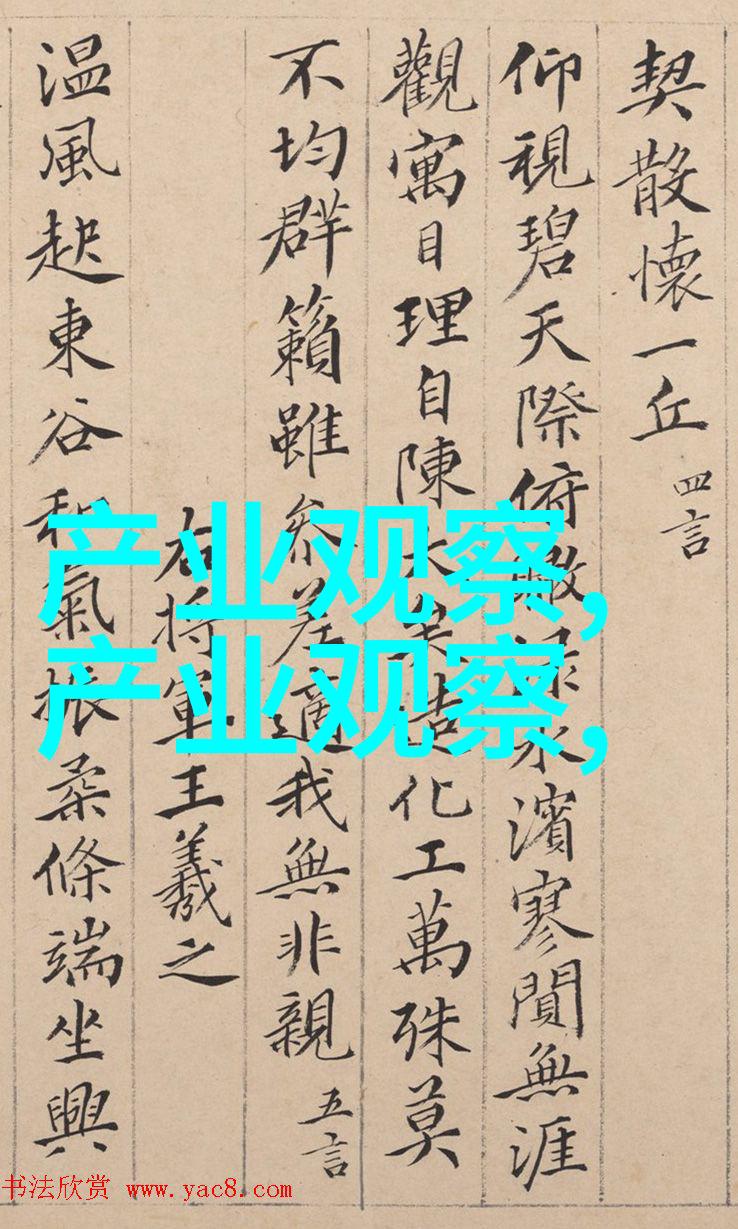 契散懷一丘 四言
仰視碧天際俯瞰渌水濱寥閴無涯
觀寓目理自陳大矣造化工萬殊莫
不均群籟雖参差適我無非親 五言
右将軍王羲之
温風起東谷和氣振柔條端坐興
产业观察,
产业观察,
书法欣赏 www.yac8.com